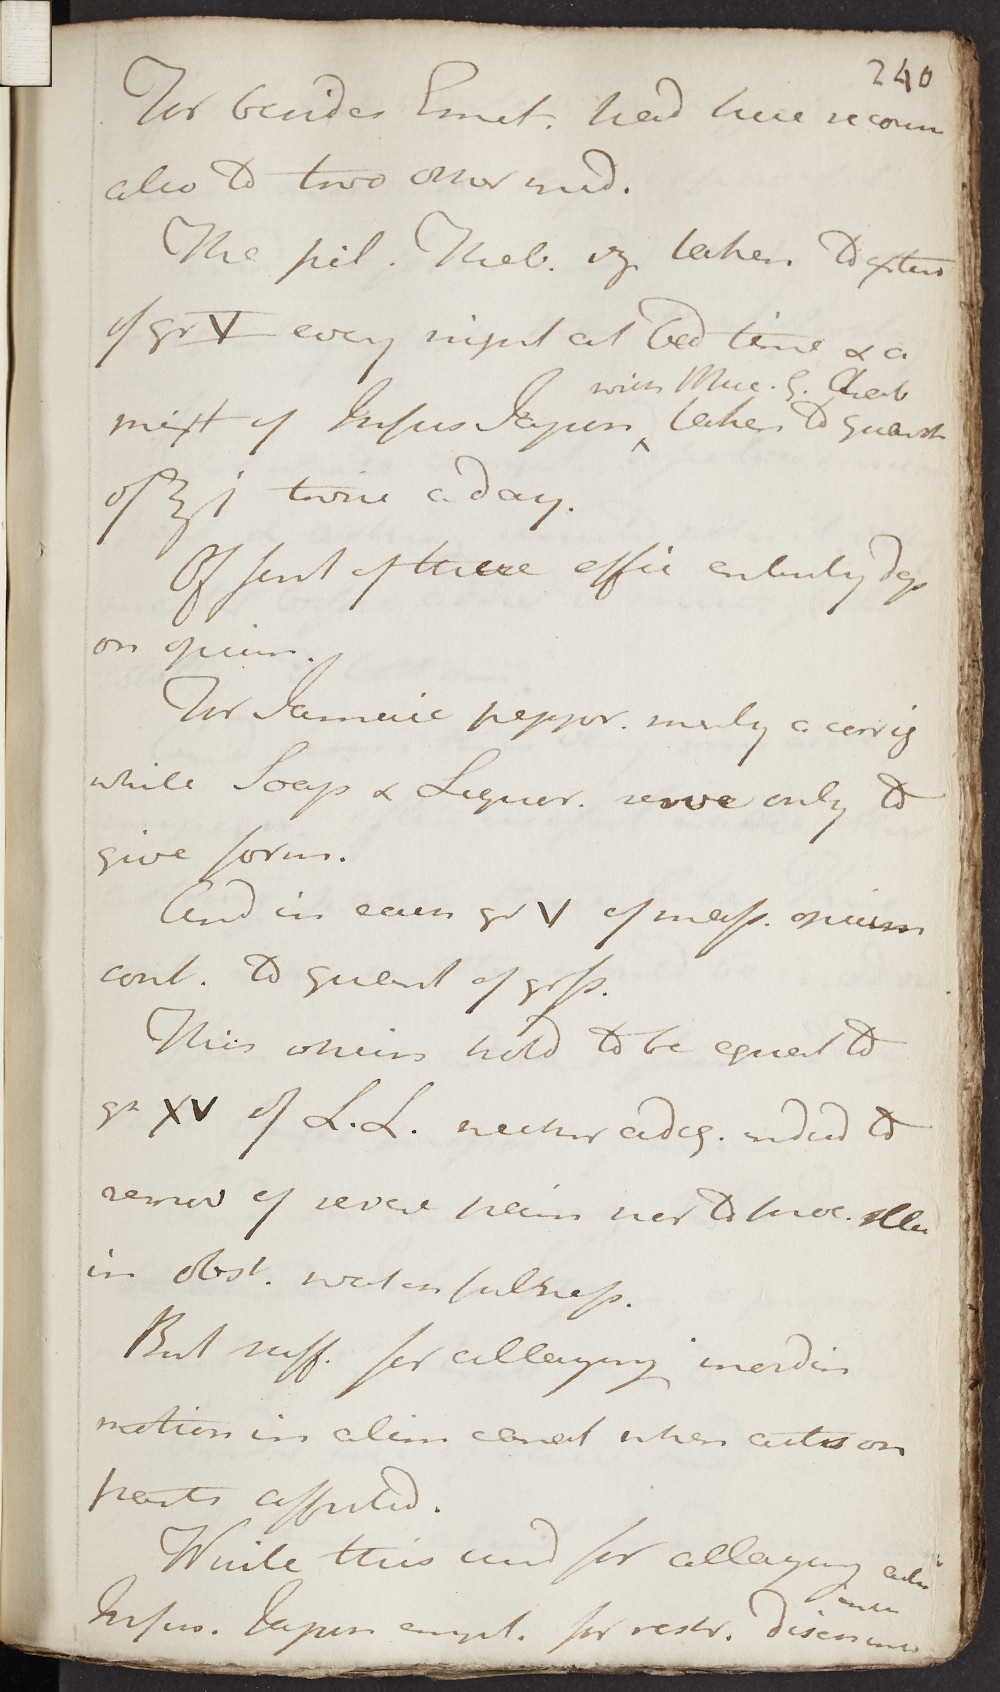 240
For besides Emet. had here recom
also to two other med.
The pil. Theb. vz. taken to extent
of gr V every night at bed time & a
with Muc. G. Arab
mixt of Infus Japon ^ taken to quant
of ℥j twice a day.
Of first of these effic entirely dep
on opium.
For Jamaic pepper. merely a corrig
while Soap & Liquor. serve only to
give form.
And in each gr V of mass. opium
cont. to quant of grss.
This opium hold to be equal to
gt XV of L.L. neither adeq. indeed to
remov of severe pain nor to proc. sleep
in obst. watchfulness.
But suff. for allaying inordin
motion in alim canal when acts on
parts affected.
While this used for allaying
Infus. Japon empl. for restr.